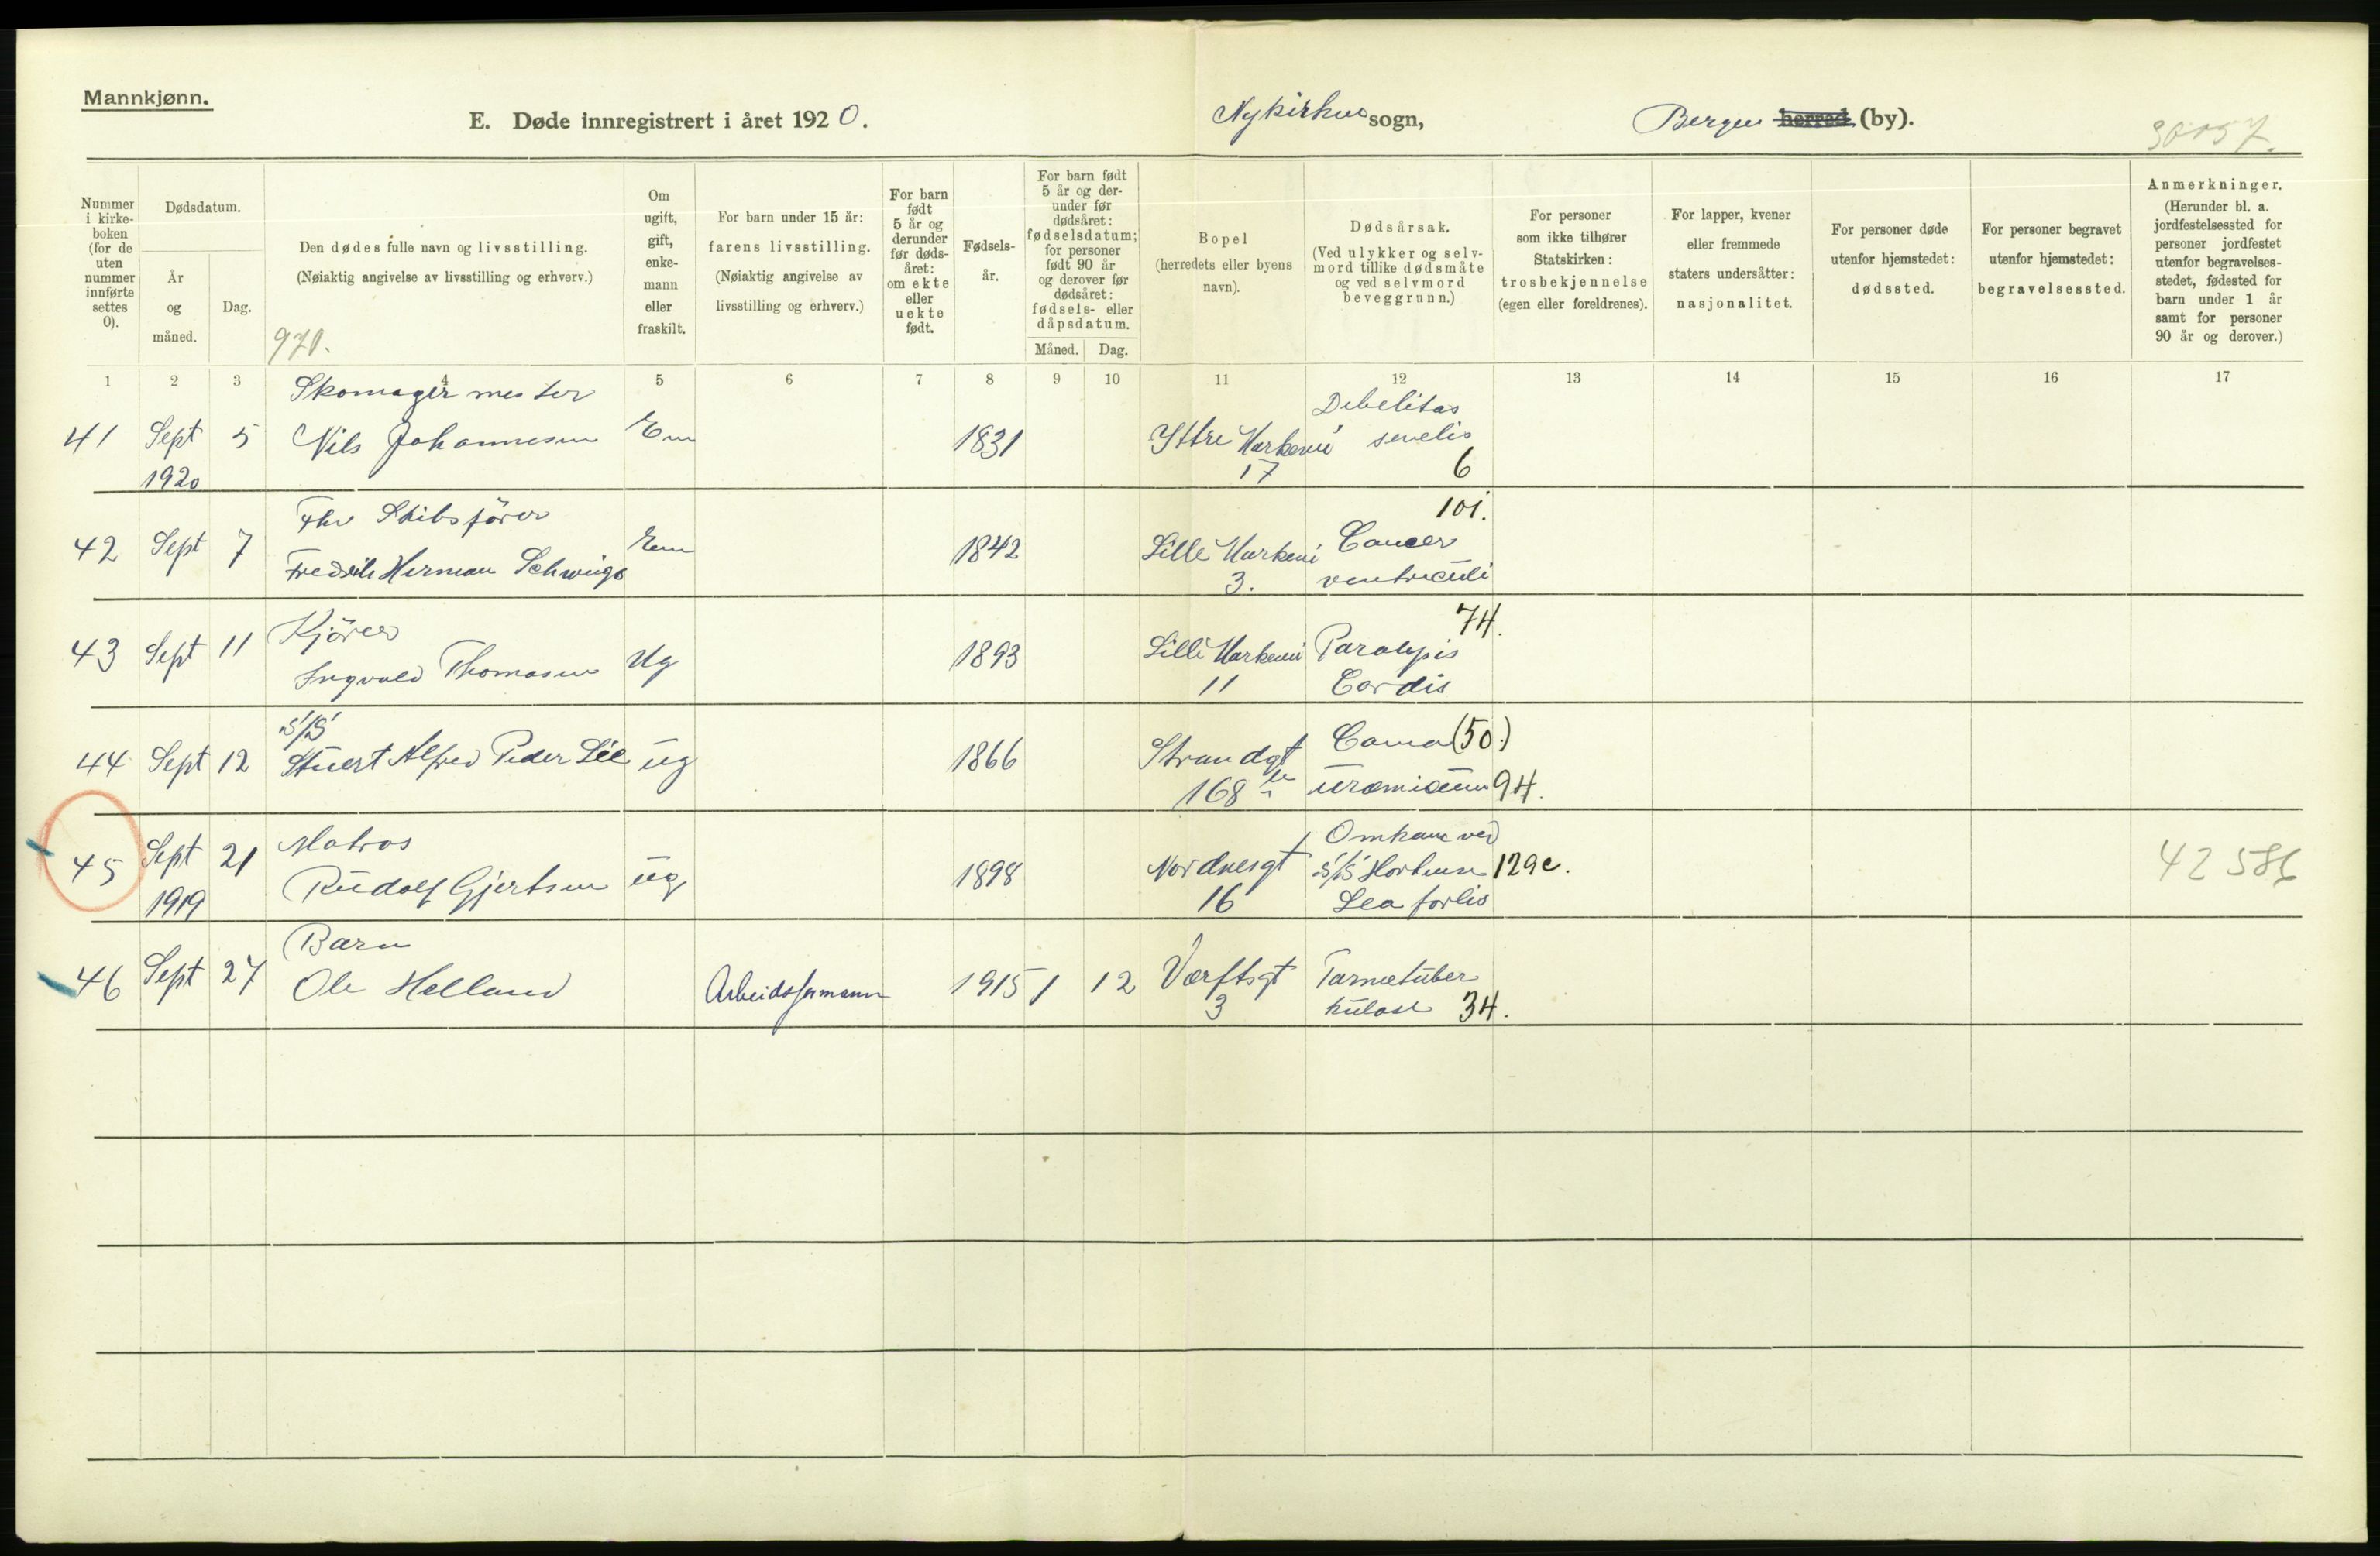 Mannkjønn.
E. Døde innregistrert i året 1920.
Nykirkens sogn,
Bergen herred (by).
Nummer i kirke-boken (for de uten nummer innførte settes 0).
Dødsdatum.
År og måned.
Dag.
Den dødes fulle navn og livsstilling.
(Nøiaktig angivelse av livsstilling og erhverv.)
970.
Om ugift, gift, enke-mann eller fraskilt.
For barn under 15 år: farens livsstilling.
(Nøiaktig angivelse av livsstilling og erhverv.)
For barn født 5 år og derunder før døds-året: om ekte eller uekte født.
Fødsels-år.
For barn født 5 år og der-under før dødsåret: fødselsdatum; for personer født 90 år og derover før dødsåret: fødsels- eller dåpsdatum.
Måned. Dag.
Bopel
(herredets eller byens navn).
Dødsårsak.
(Ved ulykker og selv-mord tillike dødsmåte og ved selvmord beveggrunn.)
For personer som ikke tilhører Statskirken: trosbekjennelse (egen eller foreldrenes).
For lapper, kvener eller fremmede staters undersåtter: nasjonalitet.
For personer døde utenfor hjemstedet: dødssted.
For personer begravet utenfor hjemstedet: begravelsessted.
Anmerkninger.
(Herunder bl. a. jordfestelsessted for personer jordfestet utenfor begravelses-stedet, fødested for barn under 1 år samt for personer 90 år og derover.)
1 2 3 4 5 6 7 8 9 10 11 12 13 14 15 16 17
Skomager mester
Debelitas
41 Sept 5 Nils Johannesen Em 1831 Yttre Markevei senelis
1920 17 6
101.
Fhv Skibsfører
42 Sept 7 Em 1842 Lille Markevei Cancer
Fredrik Herman 3. ventriculi
Kjører 74.
43 Sept 11 Ug 1893 Lille Markevei Paralysis
Ingvald Thomasen 11 Cordis
S/S
44 Sept 12 Stuert Alfred Peder Lie ug 1866 Strandgt Coma (50.)
168 uræmicum 94.
Matros Omkom ved
45 Sept 21 Rudolf Gjertsen ug 1898 Nordnesgt S/S 129c. 42586
1919 16 forlis
Barn
46 Sept 27 Ole Helland Arbeidsformann 1915 1 12 Værftsgt Tarmetuber
3 kulose 34.